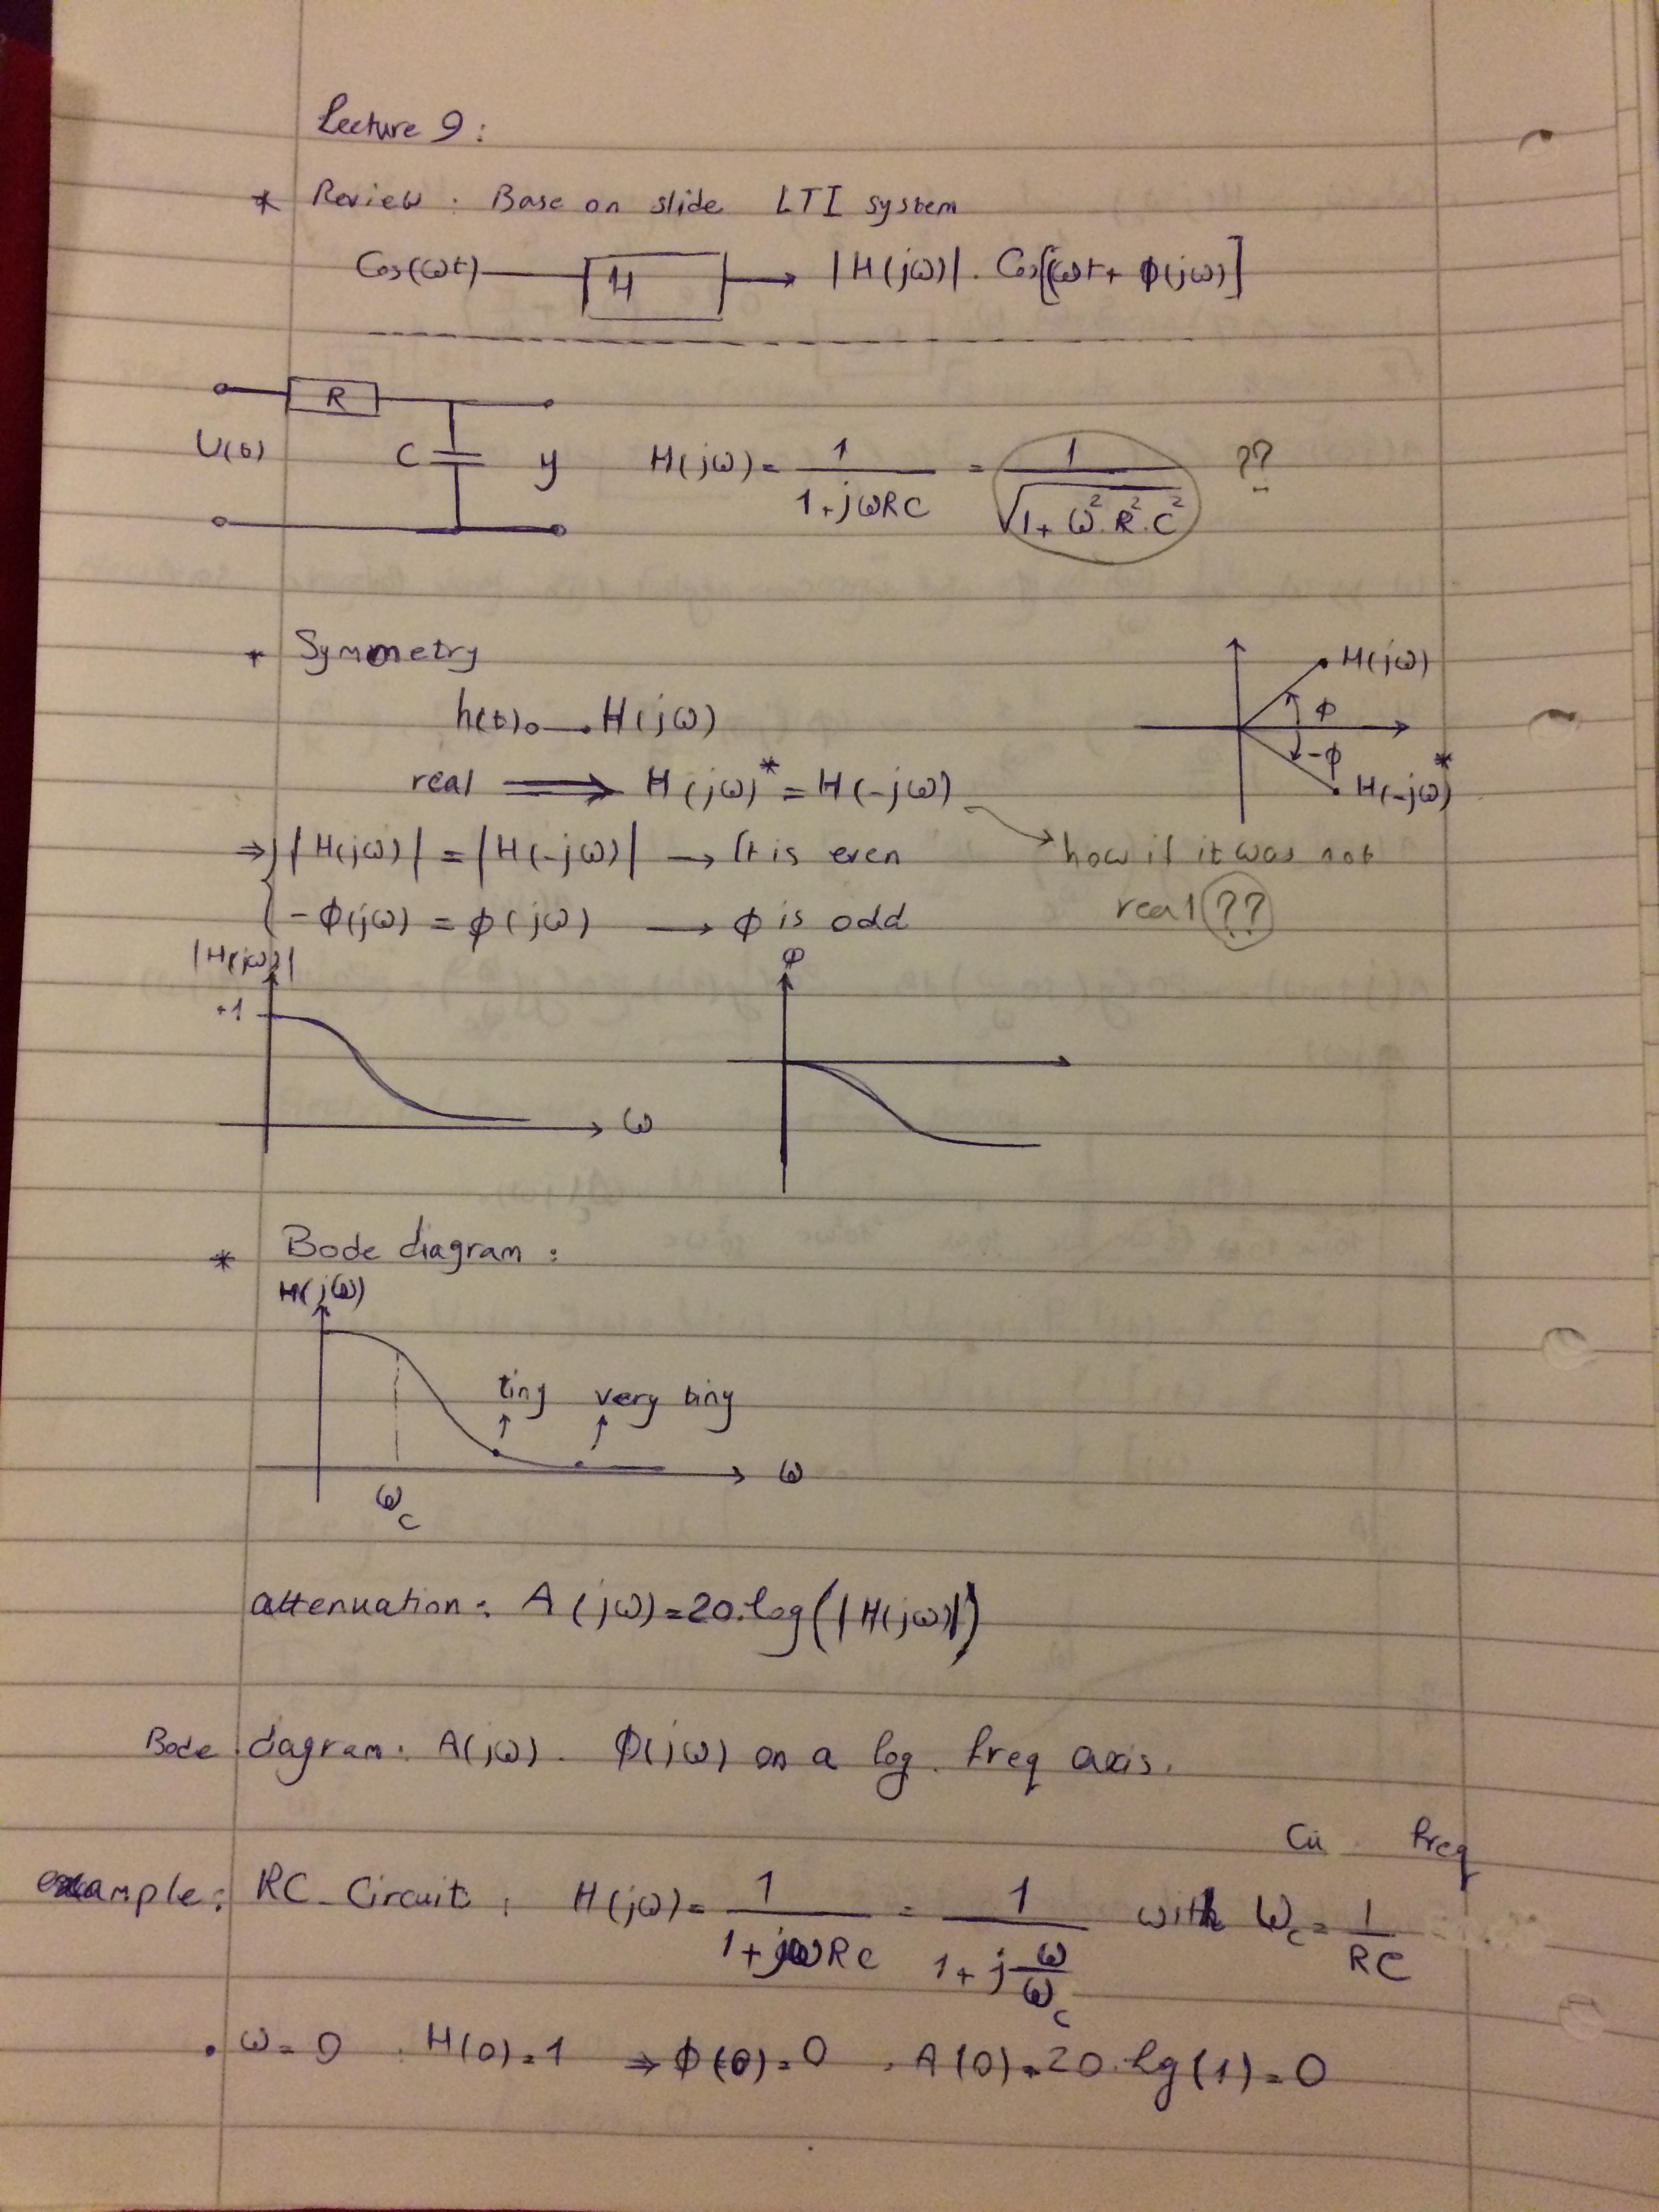 Lecture 9:
* Review: Base on slide LTI system
Cos(ωt) H |H(jω)| . Cos[(ωt + ϕ(jω)]
R
U(t) C y H(jω) = 1/(1+jωRC) = 1/√(1+ω².R².C²) ??
* Symmetry
H(jω)
h(t) H(jω)
ϕ
-ϕ
real ⟹ H(jω)* = H(-jω)
H(-jω)*
⇒ |H(jω)| = |H(-jω)| → It is even
how if it was not
real ??
-ϕ(jω) = ϕ(jω) → ϕ is odd
|H(jω)| φ
+1
ω
* Bode diagram:
H(jω)
tiny very tiny
ω
ωc
attenuation: A(jω) = 20.log(|H(jω)|)
Bode diagram: A(jω). ϕ(jω) on a log. freq axis.
freq
example: RC-Circuit: H(jω) = 1/(1+jωRC) = 1/(1+j ω/ωc) with ωc = 1/RC
. ω = 0 . H(0) = 1 ⇒ ϕ(0) = 0 . A(0) = 20.lg(1) = 0